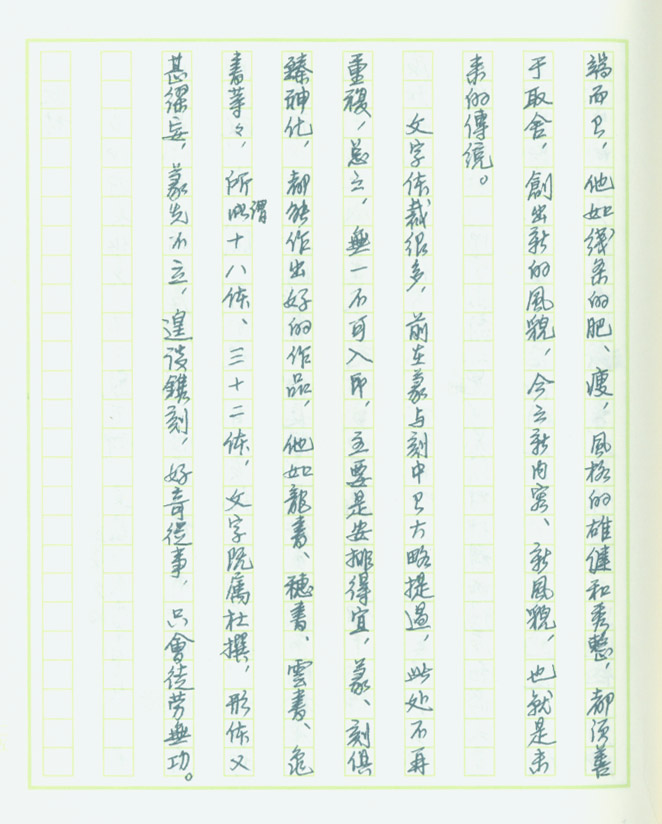 端而已，他如线条的肥、瘦，風格的雄健和秀整，都须善
于取舍，創出新的風貌，今云新内容、新風貌，也就是未
来的傳统。
文字体裁很多，前在篆与刻中已大略提過，此处不再
重複，总之，無一不可入印，主要是安排得宜，篆、刻俱
臻神化，都能作出好的作品，他如龍書、穗書、雲書、龟
書等々，所谓十八体、三十二体，文字既属杜撰，形体又
甚謬妄，篆先不立，遑谈鐫刻，好奇從事，只會徒劳無功。